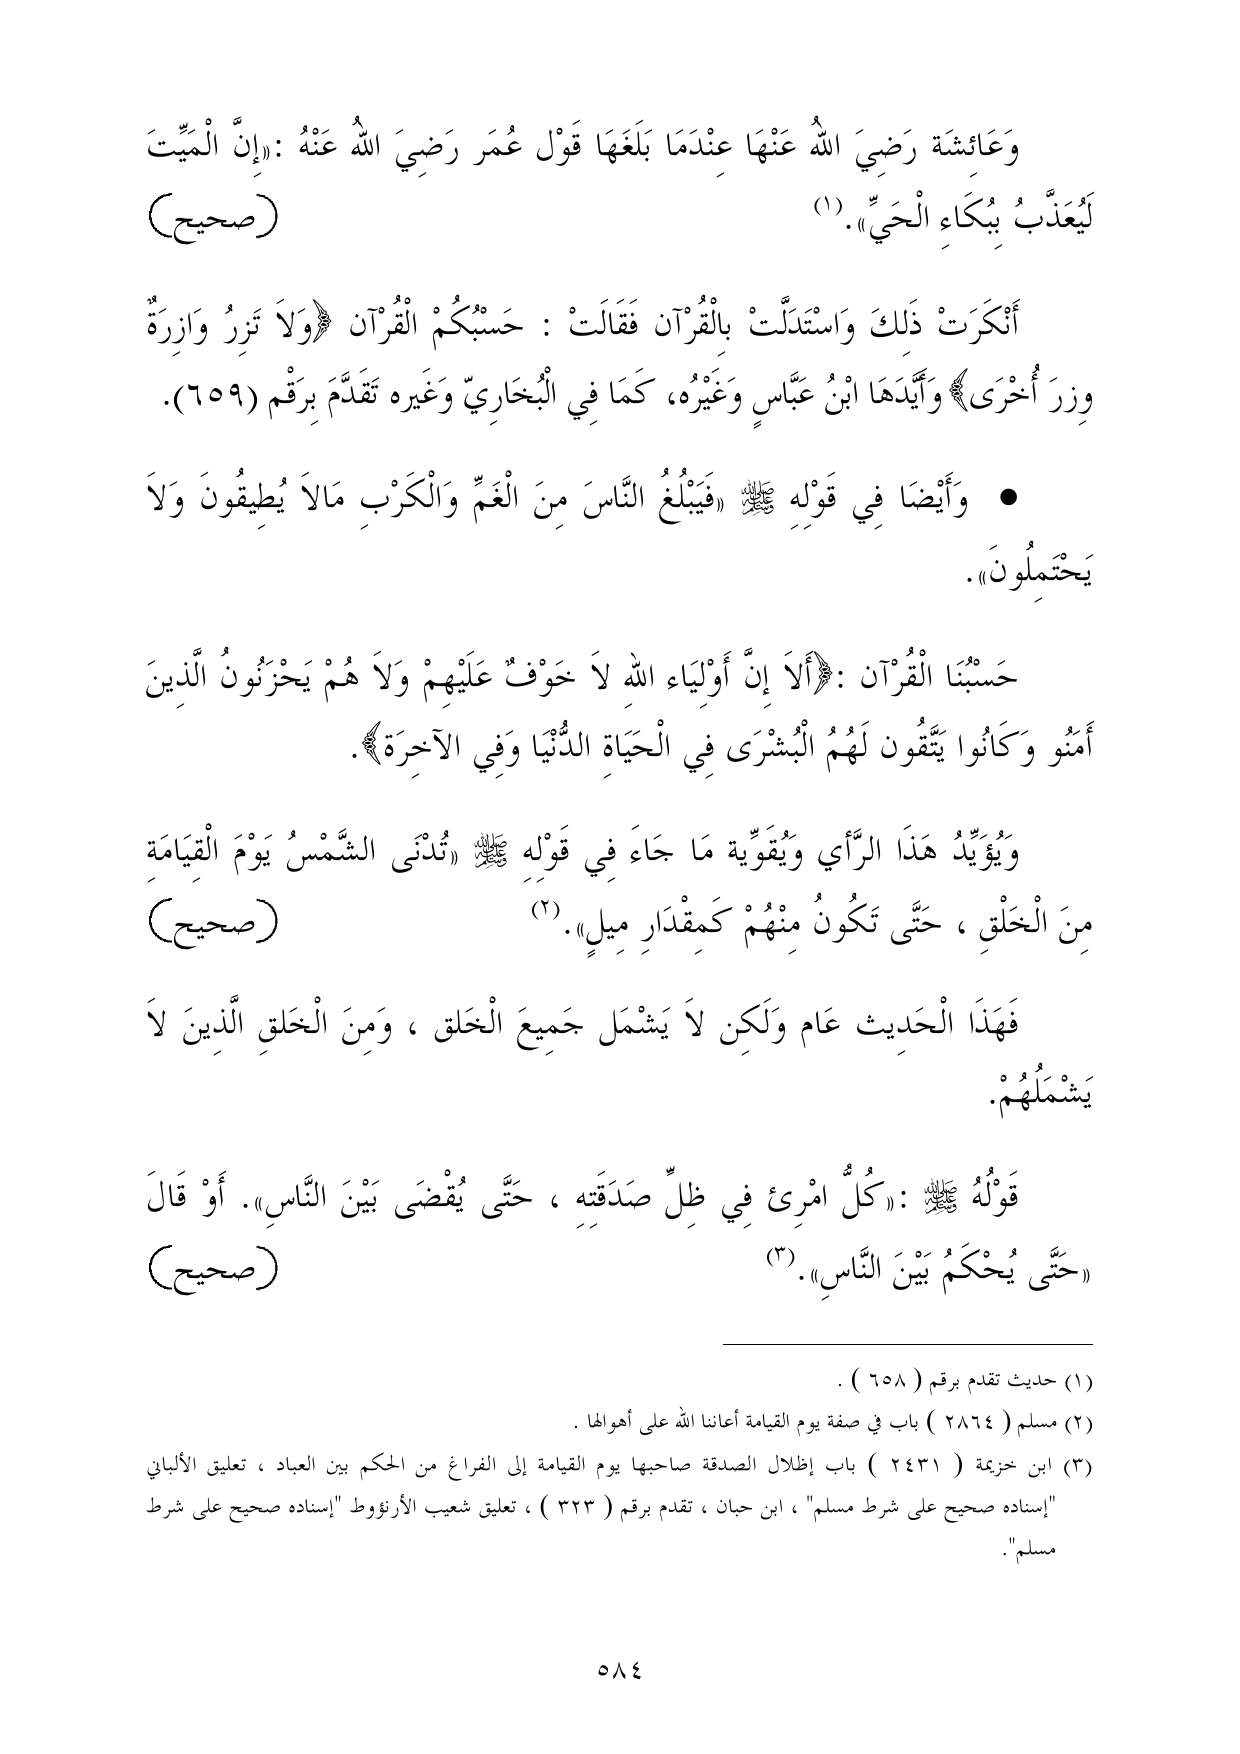 وَعَائِشَة رَضِيَ اللهُ عَنْهَا عِنْدَمَا بَلَغَهَا قَوْل عُمَر رَضِيَ اللهُ عَنْهُ :«إِنَّ الْمَيِّتَ
لَيُعَذَّبُ بِبُكَاءِ الْحَيِّ».(١) (صحيح)
أَنْكَرَتْ ذَلِكَ وَاسْتَدَلَّتْ بِالْقُرْآن فَقَالَتْ : حَسْبُكُمْ الْقُرْآن ﴿وَلاَ تَزِرُ وَازِرَةٌ
وِزرَ أُخْرَى﴾ وَأَيَّدَهَا ابْنُ عَبَّاسٍ وَغَيْرُه، كَمَا فِي الْبُخَارِيّ وَغَيره تَقَدَّمَ بِرَقْم (٦٥٩).
● وَأَيْضَا فِي قَوْلِهِ ﷺ «فَيَبْلُغُ النَّاسَ مِنَ الْغَمِّ وَالْكَرْبِ مَالاَ يُطِيقُونَ وَلاَ
يَحْتَمِلُونَ».
حَسْبُنَا الْقُرْآن :﴿أَلاَ إِنَّ أَوْلِيَاء اللهِ لاَ خَوْفٌ عَلَيْهِمْ وَلاَ هُمْ يَحْزَنُونُ الَّذِينَ
أَمَنُو وَكَانُوا يَتَّقُون لَهُمُ الْبُشْرَى فِي الْحَيَاةِ الدُّنْيَا وَفِي الآخِرَة﴾.
وَيُؤَيِّدُ هَذَا الرَّأي وَيُقَوِّية مَا جَاءَ فِي قَوْلِهِ ﷺ «تُدْنَى الشَّمْسُ يَوْمَ الْقِيَامَةِ
مِنَ الْخَلْقِ ، حَتَّى تَكُونُ مِنْهُمْ كَمِقْدَارِ مِيلٍ».(٢) (صحيح)
فَهَذَا الْحَدِيث عَام وَلَكِن لاَ يَشْمَل جَمِيعَ الْخَلق ، وَمِنَ الْخَلقِ الَّذِينَ لاَ
يَشْمَلُهُمْ.
قَوْلُهُ ﷺ :«كُلُّ امْرِئ فِي ظِلِّ صَدَقَتِهِ ، حَتَّى يُقْضَى بَيْنَ النَّاسِ». أَوْ قَالَ
«حَتَّى يُحْكَمُ بَيْنَ النَّاسِ».(٣) (صحيح)
(١) حديث تقدم برقم ( ٦٥٨ ) .
(٢) مسلم ( ٢٨٦٤ ) باب في صفة يوم القيامة أعاننا الله على أهوالها .
(٣) ابن خزيمة ( ٢٤٣١ ) باب إظلال الصدقة صاحبها يوم القيامة إلى الفراغ من الحكم بين العباد ، تعليق الألباني
"إسناده صحيح على شرط مسلم" ، ابن حبان ، تقدم برقم ( ٣٢٣ ) ، تعليق شعيب الأرنؤوط "إسناده صحيح على شرط
مسلم".
٥٨٤